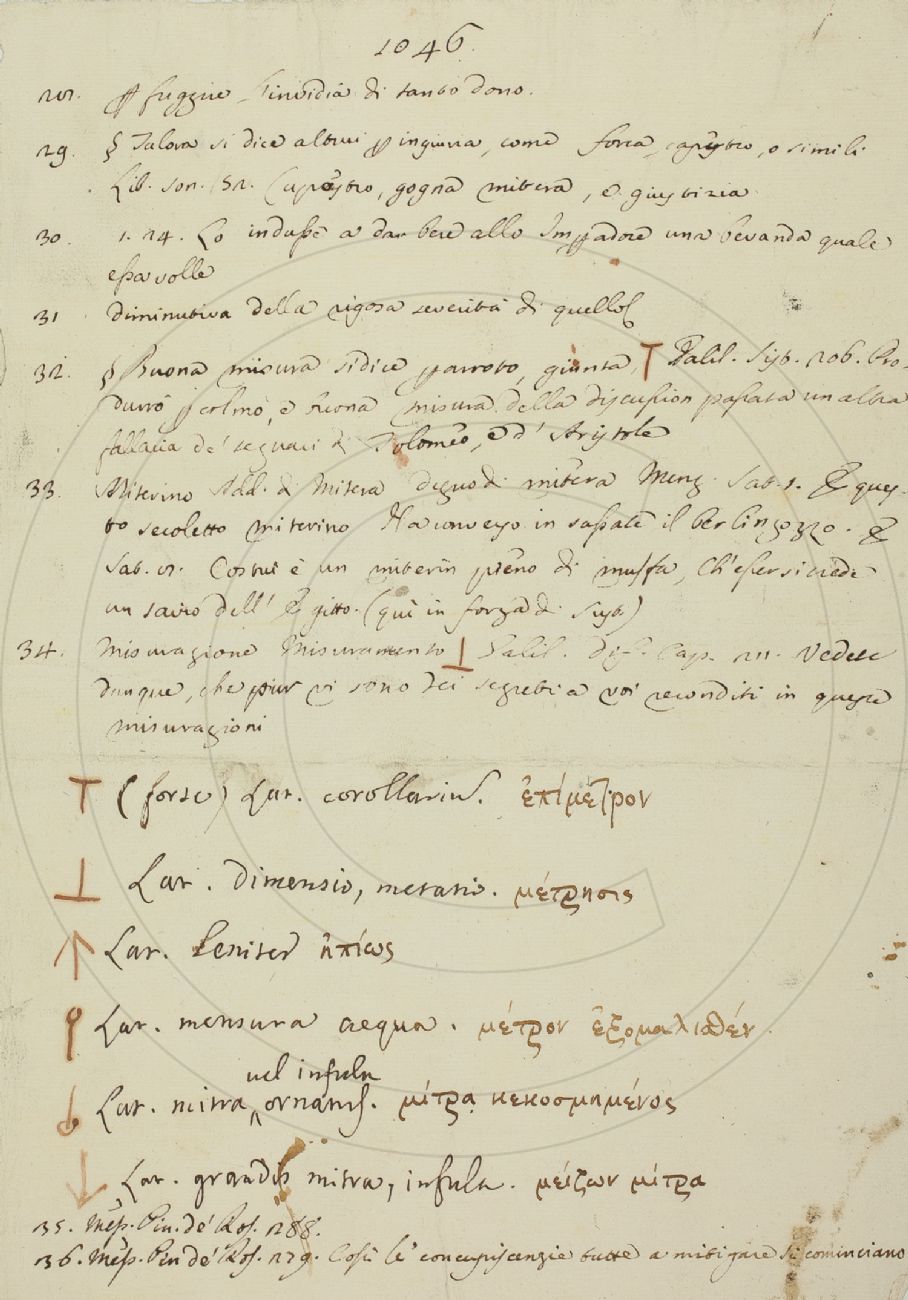 1046.
28. ꝑ fuggire l'invidia di tanto dono.
29. § Talora si dice altrui ꝑ ingiuria, come forca, capestro, o simili.
Lib. son. 52. Capestro, gogna mitera, e giustizia.
30. 1. 24. Lo indusse a dar bere allo Impꝑadore una bevanda quale
essa volle
31 diminutiva della rigosa severità di quello
32. § Buona misura si dice ꝑ arroto, giunta, ⊤ Galil. Sist. 206. Pro-
durrò ꝑ colmo, e buona misura della discussion passata un altra
fallacia de' seguaci di Tolomeo, e d' Aristotele
33. Miterino Add. di Mitera degno di mitera Menz. Sat. 1. E ques-
to secoletto miterino Ha converso in sassate il berlingozzo. E
Sat. Costui è un miterin pieno di muffa, Ch'esser si crede
un savio dell' Egitto. (qui in forza di Sust)
34. Misurazione Misuramento ⊥ Galil. Dif. Cap. Vedete
dunque, che pur vi sono dei segreti a voi reconditi in queste
misurazioni
⊤ (forse) Lat. corollarium. ἐπίμετρον
⊥ Lat. dimensio, metatio. μέτρησις
↑ Lat. leniter ἠπίως
Lat. mensura aequa. μέτρον ἐξομαλισθέν.
vel infula
Lat. mitra ^ ornatus. μίτρᾳ κεκοσμημένος
↓ Lat. grandis mitra, infula. μείζων μίτρα
35. Mess. Cin. de' Ros. 288.
36. Mess. Cin de' Ros. 279. Così le concupiscenzie tutte a mitigare si cominciano